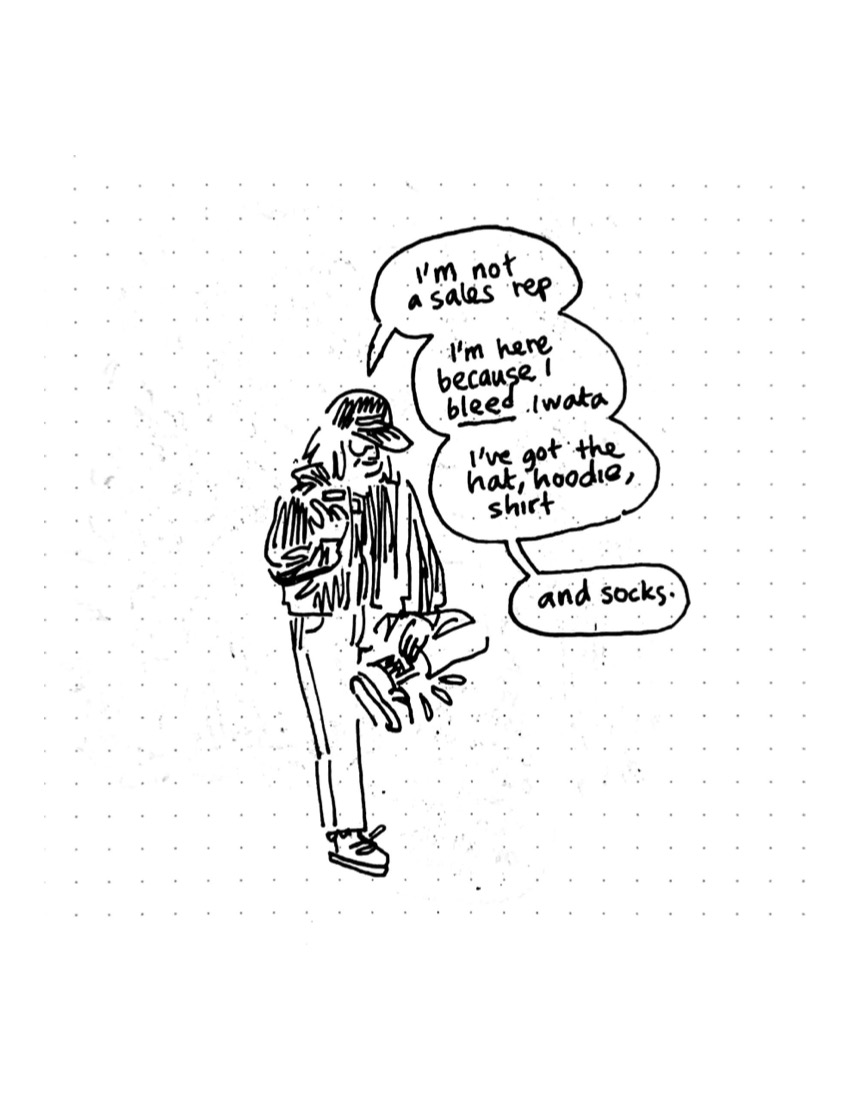 I'm not
a sales rep
I'm here
because I
bleed Iwata
I've got the
hat, hoodie,
shirt
and socks.